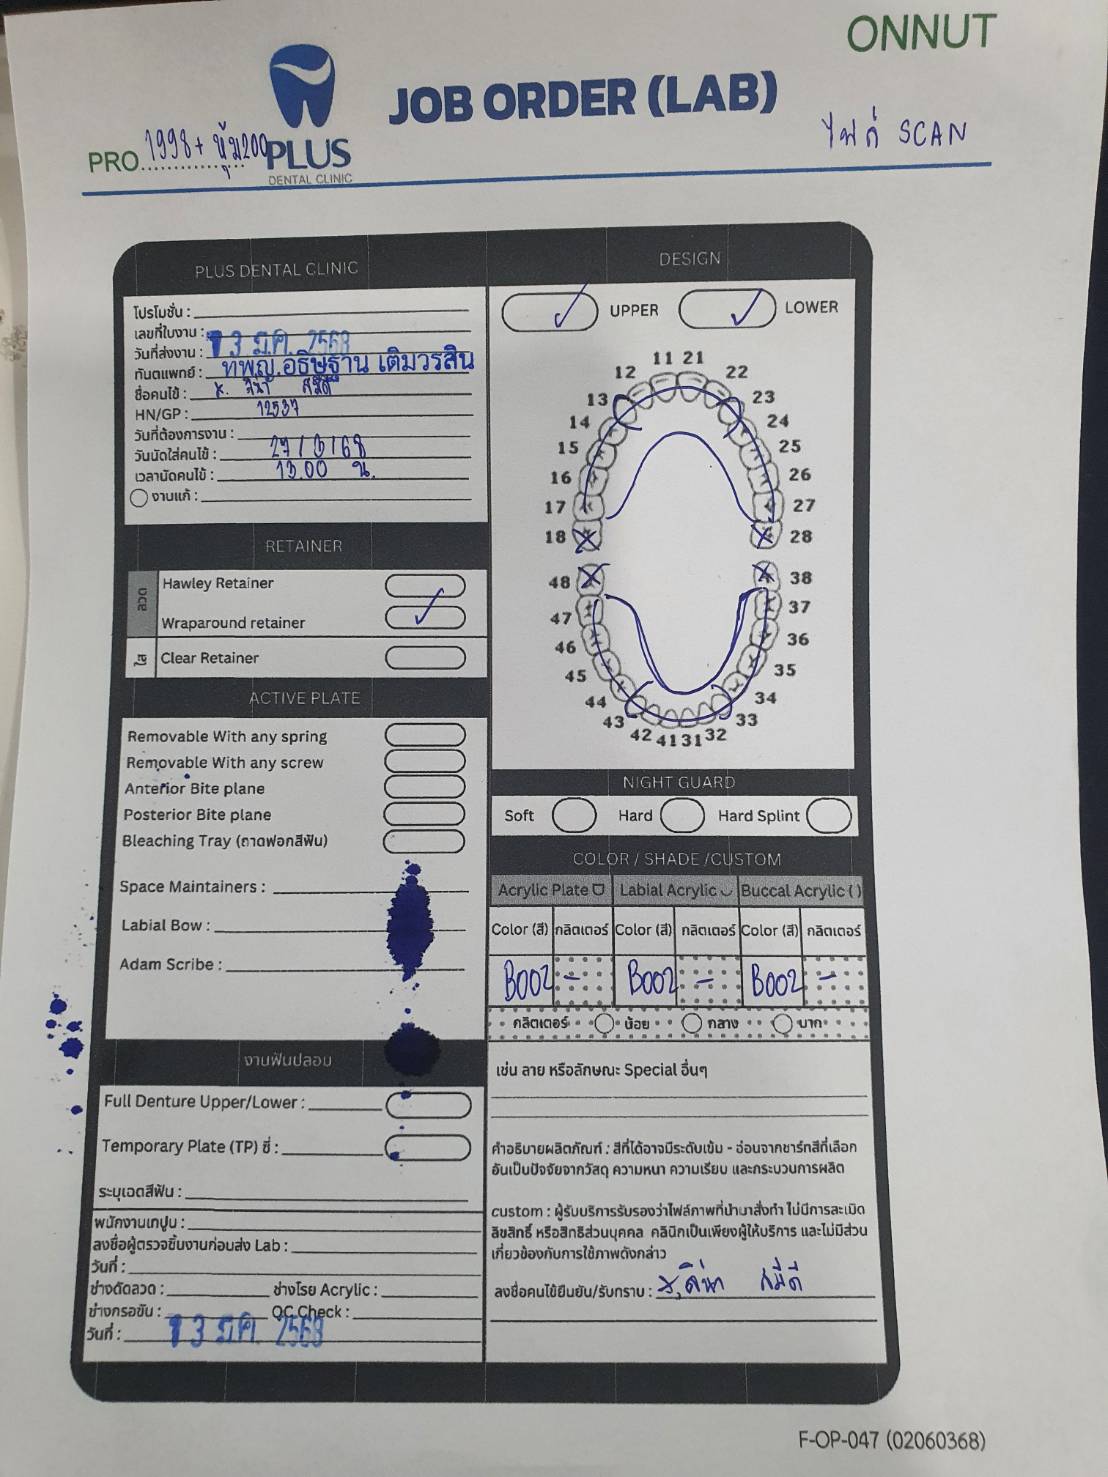 ONNUT
JOB ORDER (LAB)
PRO. 1998+ หุ้ม200
PLUS
DENTAL CLINIC
ไฟล์ SCAN
PLUS DENTAL CLINIC
โปรโมชั่น :
เลขที่ใบงาน :
วันที่ส่งงาน : 13 มี.ค. 2568
ทันตแพทย์ : ทพญ.อธิษฐาน เติมวรสิน
ชื่อคนไข้ :
HN/GP : 12537
วันที่ต้องการงาน :
วันนัดใส่คนไข้ : 27/3/68
เวลานัดคนไข้ : 13.00 น.
งานแก้ :
RETAINER
ลวด
Hawley Retainer
Wraparound retainer ✓
ใส
Clear Retainer
ACTIVE PLATE
Removable With any spring
Removable With any screw
Anterior Bite plane
Posterior Bite plane
Bleaching Tray (ถาดฟอกสีฟัน)
Space Maintainers :
Labial Bow :
Adam Scribe :
งานฟันปลอม
Full Denture Upper/Lower :
Temporary Plate (TP) ซี่ :
ระบุเฉดสีฟัน :
พนักงานเทปูน :
ลงชื่อผู้ตรวจชิ้นงานก่อนส่ง Lab :
วันที่ :
ช่างดัดลวด : ช่างโรย Acrylic :
ช่างกรอขัน : QC Check :
วันที่ : 13 มี.ค. 2568
DESIGN
✓ UPPER ✓ LOWER
11 21
12 22
13 23
14 24
15 25
16 26
17 27
18 28
48 38
47 37
46 36
45 35
44 34
43 33
42 41 31 32
NIGHT GUARD
Soft Hard Hard Splint
COLOR / SHADE /CUSTOM
Acrylic Plate Labial Acrylic Buccal Acrylic ( )
Color (สี) กลิตเตอร์ Color (สี) กลิตเตอร์ Color (สี) กลิตเตอร์
B002 - B002 - B002 -
กลิตเตอร์ น้อย กลาง มาก
เช่น ลาย หรือลักษณะ Special อื่นๆ
คำอธิบายผลิตภัณฑ์ : สีที่ได้อาจมีระดับเข้ม - อ่อนจากชาร์ทสีที่เลือก
อันเป็นปัจจัยจากวัสดุ ความหนา ความเรียบ และกระบวนการผลิต
custom : ผู้รับบริการรับรองว่าไฟล์ภาพที่นำมาสั่งทำ ไม่มีการละเมิด
ลิขสิทธิ์ หรือสิทธิส่วนบุคคล คลินิกเป็นเพียงผู้ให้บริการ และไม่มีส่วน
เกี่ยวข้องกับการใช้ภาพดังกล่าว
ลงชื่อคนไข้ยืนยัน/รับทราบ :
F-OP-047 (02060368)